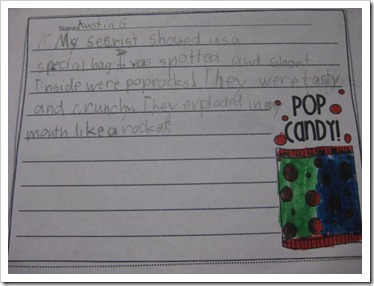 Name: Austin G
My seerist showed us a
special bag. It was spotted and shoot
Inside were poprocks! They were tasty
and crunchy. They exploded in my
mouth like a rocket!
POP
CANDY!